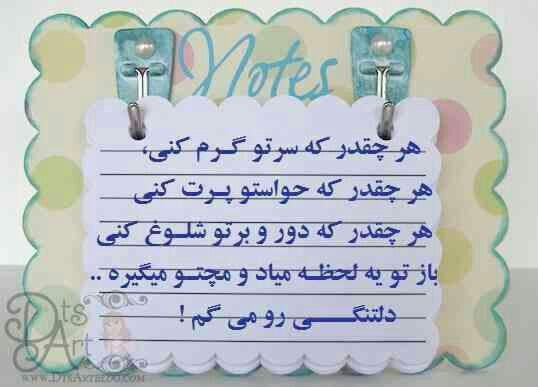 Notes
هر چقدر که سرتو گـرم کنی،
هر چقدر که حواستو پـرت کنی
هر چقدر که دور و برتو شلـوغ کنی
باز تو یه لحظـه میاد و مچتـو میگیره ..
دلتنگــی رو می گم !
Dts
Art
www.DtsArtblog.com